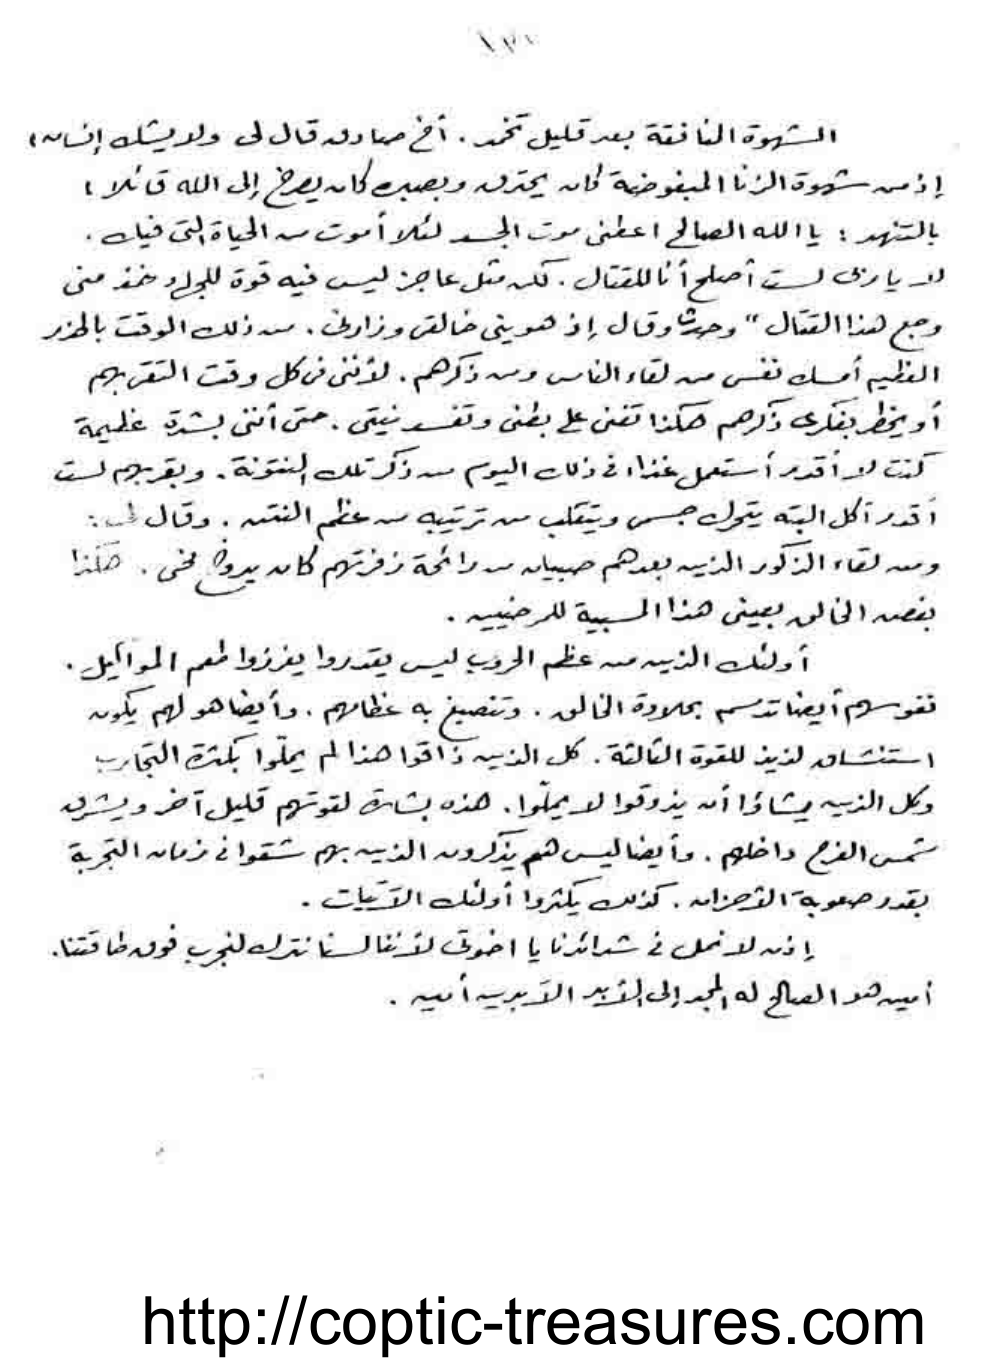 الشهوة النافقة بعد قليل تخمد . أخ صادق قال لى ولا يشك إنسان ،
إذ من شهوة الزنا المبغوضة كان يحترق وبصبره كان يصرخ إلى الله قائلا ،
بالتنهد : يا الله الصالح اعطنى موت الجسد لئلا أموت من الحياة التى فيك .
لا يا ربى لست أصلح أنا للقتال . لكن مثل عاجز ليس فيه قوة للجهاد خذ منى
وجع هذا القتال " وحدثنا وقال إذ هو بنى خالقى وزارنى . من ذلك الوقت بالحذر
العظيم أمسك نفسى من لقاء الناس ومن ذكرهم . لأننى فى كل وقت التقى بهم
أو يخطر بفكرى ذكرهم هكذا تغنى على بطنى وتفسد نيتى . حتى أننى بشدة عظيمة
كنت لا أقدر أستعمل غذاء فى ذلك اليوم من ذكر تلك النتونة . وبقربهم لست
أقدر آكل البته يتحرك جسمى ويتقلب من ترتيبه من عظم النتن . وقال لى :
ومن لقاء الذكور الذين بعدهم صبيان من رائحة زفرتهم كان يدوخ مخى . هكذا
بغصن الخالق بعينى هذا المسبية للمرضيين .
أولئك الذين من عظم الحروب ليس يقدروا يفرزوا طعم المواكيل .
نفوسهم أيضا تدسم بحلاوة الخالق . وتنصبغ به عظامهم . وأيضا هو لهم يكون
استنشاق لذيذ للقوة الثالثة . كل الذين ذاقوا هذا لم يملّوا بكثرة التجارب
وكل الذين يشاؤا أن يذوقوا لا يملّوا . هذه بشارة لقوتهم قليل آخر ويشرق
شمس الفرح داخلهم . وأيضا ليس هم يذكرون الذين بهم شقوا فى زمان التجربة
بقدر صعوبة الأحزان . كذلك يكثروا أولئك الآتيات .
إذن لا نمل فى شدائدنا يا اخوتى لأننا لسنا نترك لنجرب فوق طاقتنا .
أمين هو الصالح له المجد إلى الأبد الآبدين أمين .
http://coptic-treasures.com